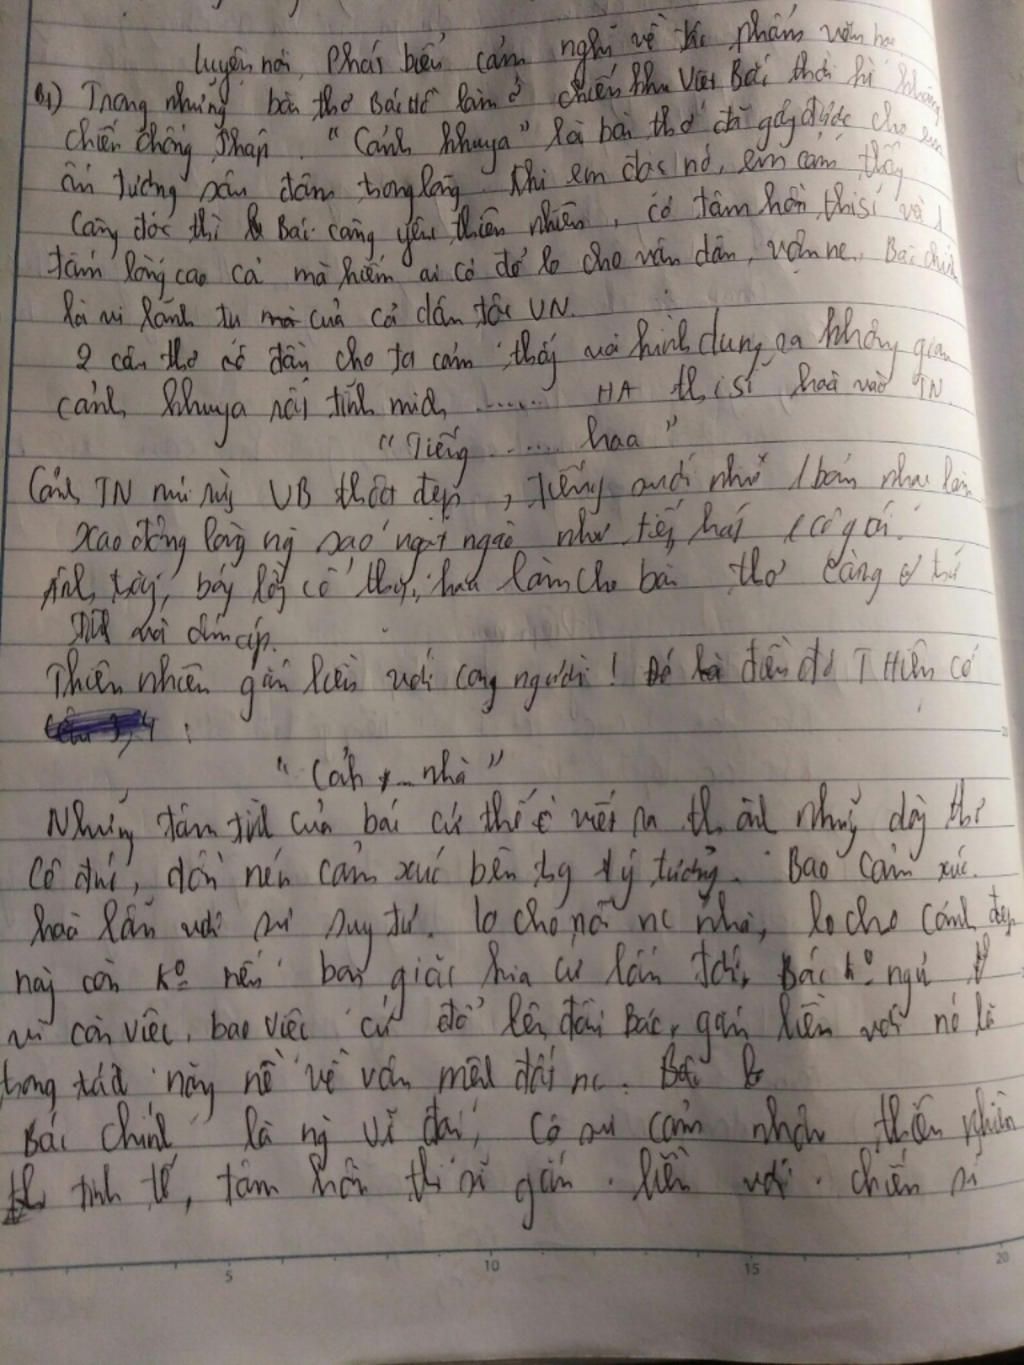 Luyện nói Phát biểu cảm nghĩ về tác phẩm văn học
B1) Trong những bài thơ Bác Hồ làm ở chiến khu Việt Bắc thời kì kháng
chiến chống Pháp. "Cảnh khuya" là bài thơ đã gây được cho em
ấn tượng sâu đậm trong lòng. Khi em đọc nó, em cảm thấy
càng đọc thì Bác càng yêu thiên nhiên, có tâm hồn thi sĩ và 1
tấm lòng cao cả mà hiếm ai có đó lo cho vân dân, vận nc. Bác chính
là vị lãnh tụ của cả dân tộc VN.
2 câu thơ đầu cho ta cảm thấy và hình dung ra không gian
cảnh khuya tĩnh mịch ....... HA thi sĩ hoà vào TN.
"Tiếng .... hoa"
Cảnh TN núi rừng VB thật đẹp, tiếng suối như 1 bản nhạc làm
xao động lòng ng sao ngọt ngào như tiếng hát 1 cô gái.
Ánh trăng, bóng lồng cổ thụ, hoa làm cho bài thơ càng
Thiên nhiên gắn liền với con người! Đó là điều đó T Hiên có
câu 3, 4 :
"Cảnh ... nhà"
Những tâm tình của bác cứ thế viết ra thành những dòng thơ
cô đúc, dồn nén cảm xúc bên tg lý tưởng. Bao cảm xúc
hoà lẫn với sự suy tư. lo cho nỗi nc nhà, lo cho cảnh đẹp
này còn kº nếu bọn giặc kia cứ lấn tới. Bác kº ngủ
vì còn việc, bao việc cứ đổ lên đầu Bác, gắn liền với nó là
trọng trách nặng nề về vận mệnh đất nc.
Bác chính là ng vĩ đại, có sự cảm nhận thiên nhiên
tinh tế, tâm hồn thi sĩ gắn liền với chiến sĩ
5 10 15 20